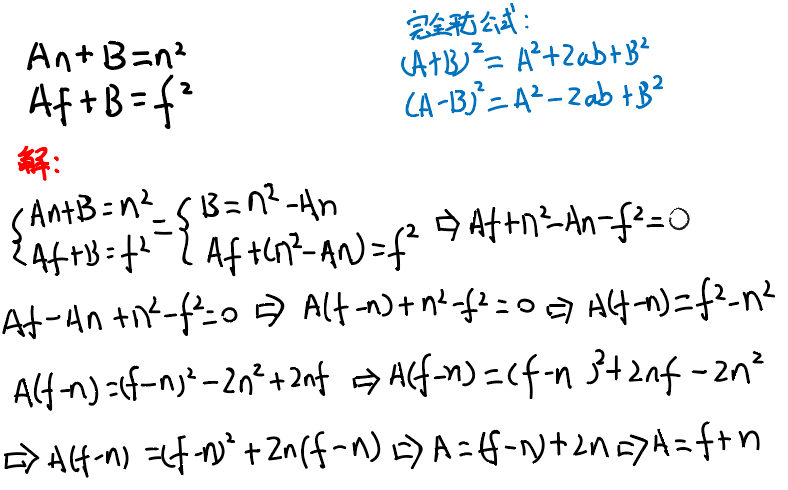 An+B=n²
Af+B=f²
完全平方公式:
(A+B)²=A²+2ab+B²
(A-B)²=A²-2ab+B²
解:
{An+B=n² = {B=n²-An
{Af+B=f² {Af+(n²-An)=f² ⇨ Af+n²-An-f²=0
Af-An+n²-f²=0 ⇨ A(f-n)+n²-f²=0 ⇨ A(f-n)=f²-n²
A(f-n)=(f-n)²-2n²+2nf ⇨ A(f-n)=(f-n)²+2nf-2n²
⇨ A(f-n)=(f-n)²+2n(f-n) ⇨ A=(f-n)+2n ⇨ A=f+n